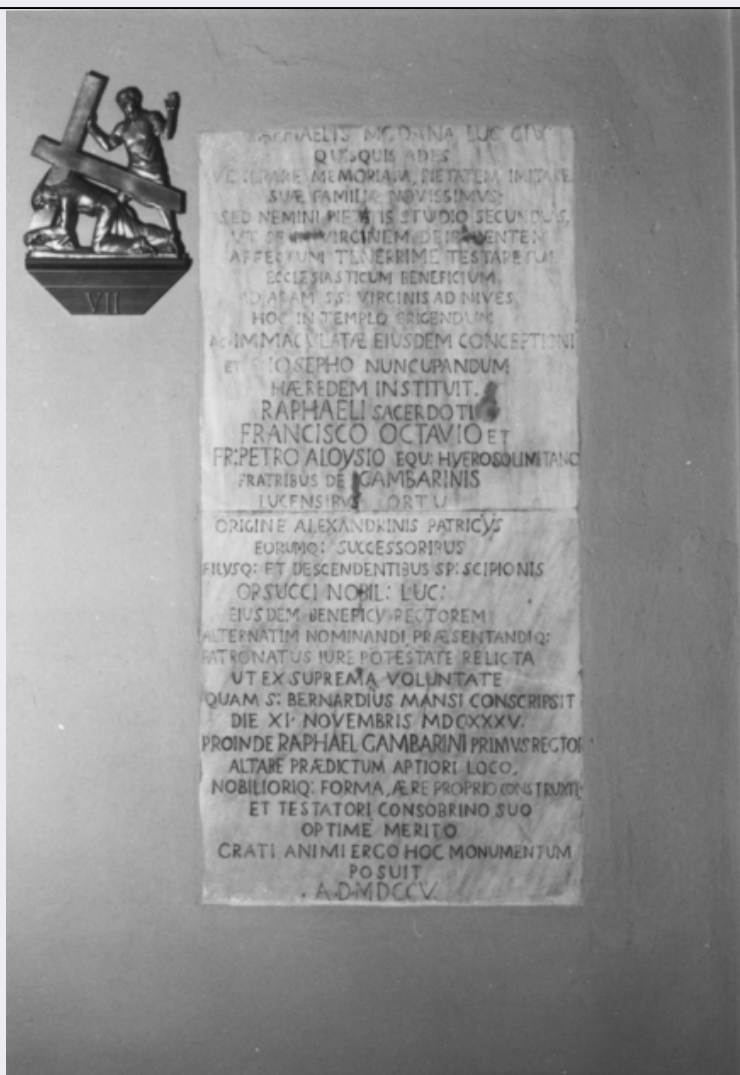 VII
LUC CIV
QUISQUIS ADES
MEMORIAM, PIETATEM IMITARE
SUÆ FAMILIÆ NOVISSIMUS
SED NEMINI PIETATIS STUDIO SECUNDUS,
VT VIRGINEM DEIPARENTEM
AFFECTUM TENERRIME TESTARETUR
ECCLESIASTICUM BENEFICIUM
AD ARAM SS: VIRGINIS AD NIVES
HOC IN TEMPLO ERIGENDUM
AC IMMACULATÆ EIUSDEM CONCEPTIONI
ET S IOSEPHO NUNCUPANDUM
HÆREDEM INSTITUIT.
RAPHAELI SACERDOTI
FRANCISCO OCTAVIO ET
FR: PETRO ALOYSIO EQU: HYEROSOLIMITANO
FRATRIBUS DE GAMBARINIS
LUCENSIBUS ORTU
ORIGINE ALEXANDRINIS PATRICYS
EORUMQ: SUCCESSORIBUS
FILYSQ: ET DESCENDENTIBUS SP: SCIPIONIS
OPSUCCI NOBIL: LUC:
EIUSDEM BENEFICY RECTOREM
ALTERNATIM NOMINANDI, PRÆSENTANDIQ:
PATRONATUS IURE POTESTATE RELICTA
UT EX SUPREMA VOLUNTATE
QUAM S: BERNARDIUS MANSI CONSCRIPSIT
DIE XI NOVEMBRIS MDCXXXV.
PROINDE RAPHAEL GAMBARINI PRIMVS RECTOR
ALTARE PRÆDICTUM APTIORI LOCO,
NOBILIORIQ: FORMA, ÆRE PROPRIO CONSTRUXIT,
ET TESTATORI CONSOBRINO SUO
OPTIME MERITO
GRATI ANIMI ERGO HOC MONUMENTUM
POSUIT
. A.D.MDCCV.